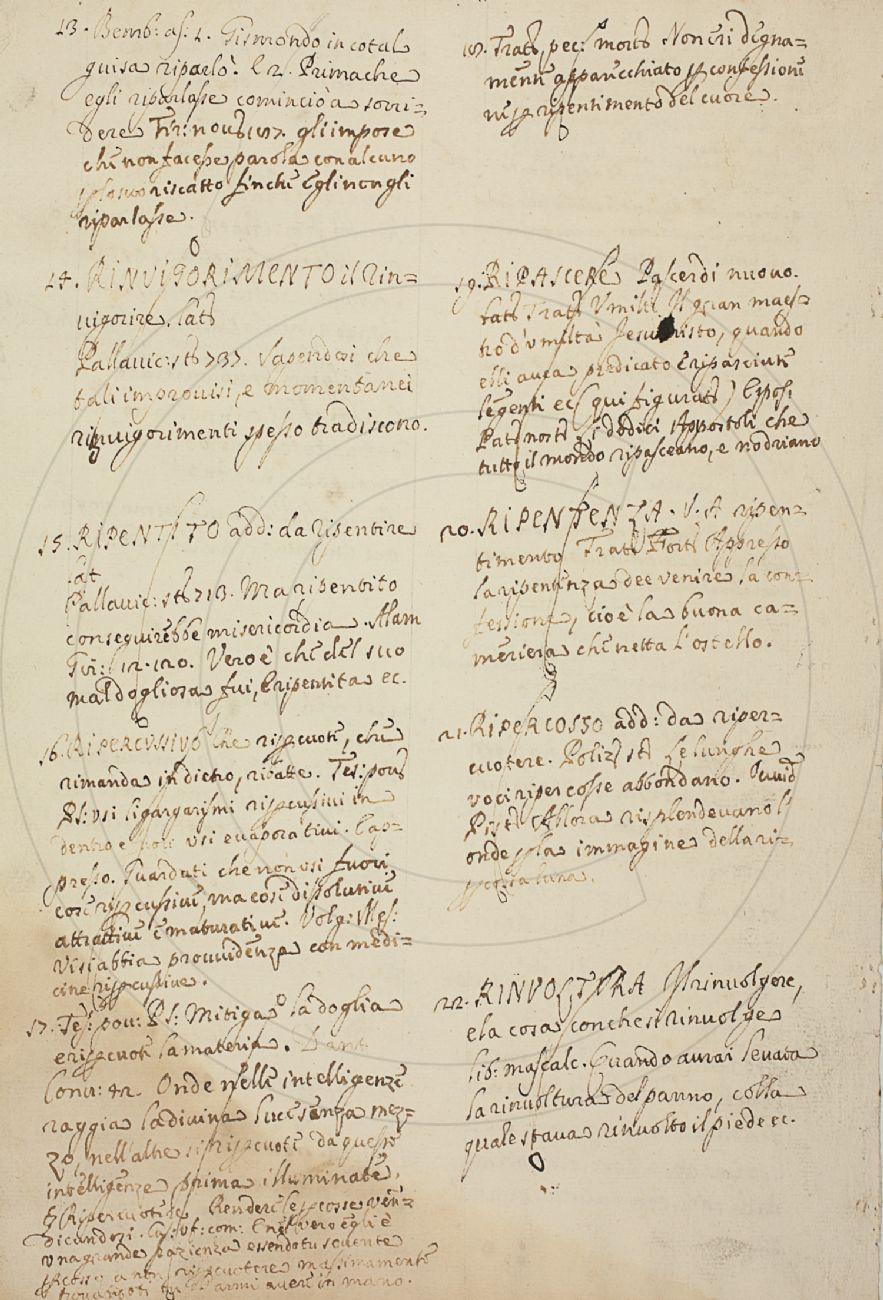 13. Bemb: as: 1. Gismondo in cotal
guisa riparlò. E 2. Prima che
egli riparlasse cominciò a sorri=
dere Fir: nov: 197. gli impose
che non facesse parola con alcuno
riscatto finche egli non gli
riparlasse.
14. RINVIGORIMENTO il Rin=
uigorire. Lat
Pallauic: st: 737. Sapendosi che
tali improuisi, e momentanei
rinuigorimenti spesso tradiscono.
15. RIPENTITO add: da ripentire
Lat
Pallauic: st: 713. Ma ripentito
conseguirebbe misericordia. Alam
Gir: 12. 120. Vero è che del suo
mal dogliosa fui, e ripentita ec.
16. RIPERCUSSIVO che ripercuote, che
rimanda in dietro, ribatte. Tes: pou
P. S: usi li gargarismi ripercussiui in
dentro e poi usi euaporatiui. E ap=
presso. Guardati che non usi fuori
cose ripercussiue, ma cose dissolutiue
attrattiue e maturatiue. Volg: Mes:
Visi abbia prouuidenza con medi=
cine ripercussiue.
17. Tes: pou: P. S: Mitiga la doglia
e ripercuote la materia. Dant
Conu: 42. Onde nelle intelligenze
raggia la diuina luce senza mez=
zo, nell'altre si ripercuote da queste
intelligenze prima illuminate.
Ripercuotere Rendere le percosse ven=
dicandosi. com: vero egli è
una grande pazienza essendo tu souente
percosso a non ripercuotere massimamente
armi auere in mano.
Tratt. pec: mort Non eri degna=
mente apparecchiato per confessione
ne per ripentimento del cuore.
19. RIPASCERE Pascer di nuouo.
Lat Tratt Umilt Il gran maes=
tro d'umiltà Jesu Cristo, quando
elli auea predicato e ripasciute
le genti ec (qui figurat) Espos:
Pat: nost: i dodici Appostoli che
tutto il mondo ripasceano, e nodriano
20. RIPENTENZA. V. A ripen=
timento Tratt Fort: Appresso
la ripentenza dee venire la con=
fessione, cioè la buona ca=
meriera che netta l'ostello.
21. RIPERCOSSO add: da riper=
cuotere. Poliz: st: Le lunghe
voci ripercosse abbondano.
Pist: Allora risplendeuan l'
onde per la immagine della ri=
percossa luna.
22. RINVOLTURA Il rinuolgere,
e la cosa con che si rinuolge
Lib: mascalc. Quando aurai leuata
la rinuoltura del panno, colla
quale staua rinuolto il piede ec.